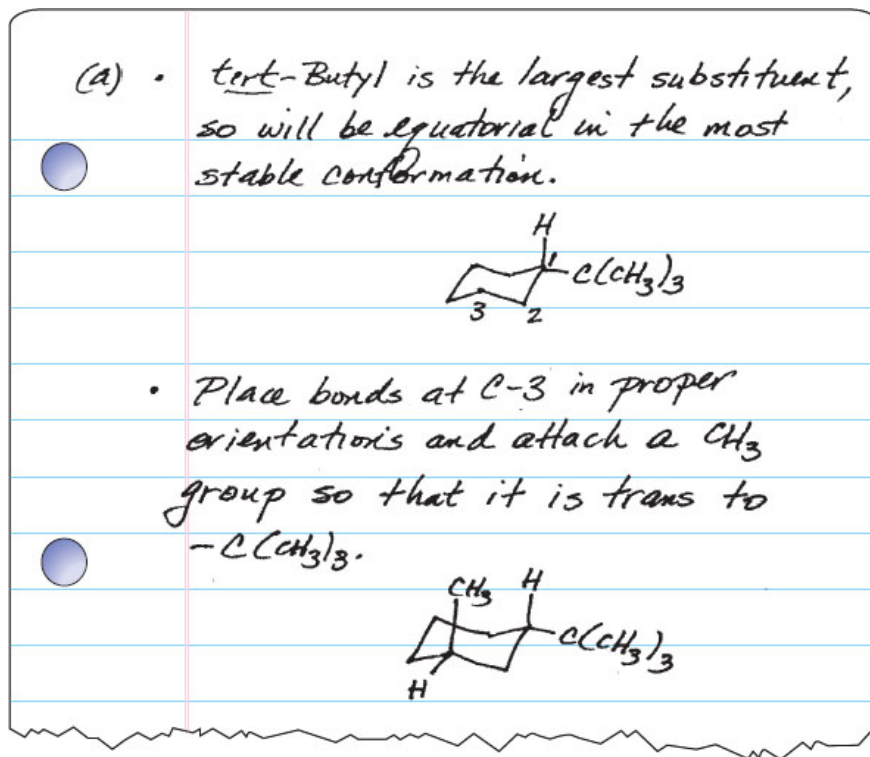 (a) • tert-Butyl is the largest substituent,
so will be equatorial in the most
stable conformation.
H
1
C(CH3)3
3 2
• Place bonds at C-3 in proper
orientations and attach a CH3
group so that it is trans to
-C(CH3)3.
CH3 H
C(CH3)3
H